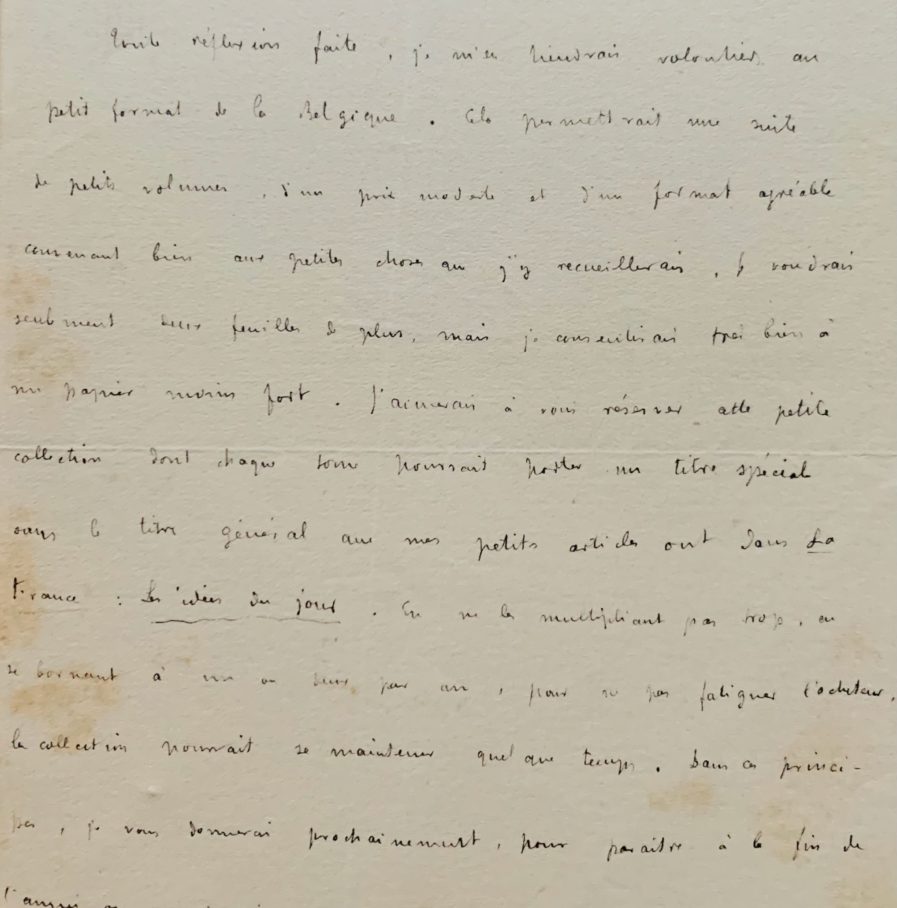 Toute réflexion faite, je m'en tiendrais volontiers au
petit format de la Belgique. Cela permettrait une suite
de petits volumes, d'un prix modeste et d'un format agréable
convenant bien aux petites choses que j'y recueillerais. Je voudrais
seulement deux feuilles de plus, mais je consentirais très bien à
un papier moins fort. J'aimerais à vous réserver cette petite
collection dont chaque tome pourrait porter un titre spécial
sous le titre général que mes petits articles ont dans La
France : Les idées du jour. En ne les multipliant pas trop, en
se bornant à un ou deux par an, pour ne pas fatiguer l'acheteur,
la collection pourrait se maintenir quelque temps. Dans ces princi-
pes, je vous donnerai prochainement, pour paraître à la fin de
l'année